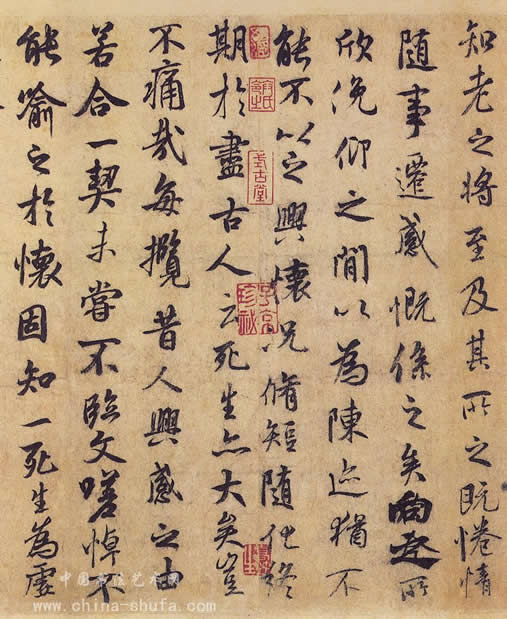 知老之将至及其所之既惓情
随事遷感慨係之矣向之所
欣俛仰之閒以為陳迹猶不
能不以之興懷況脩短随化終
期於盡古人云死生亦大矣豈
不痛哉每攬昔人興感之由
若合一契未嘗不臨文嗟悼不
能喻之於懷固知一死生為虛
式古堂
子京珍秘
中国书法艺术网
www.china-shufa.com